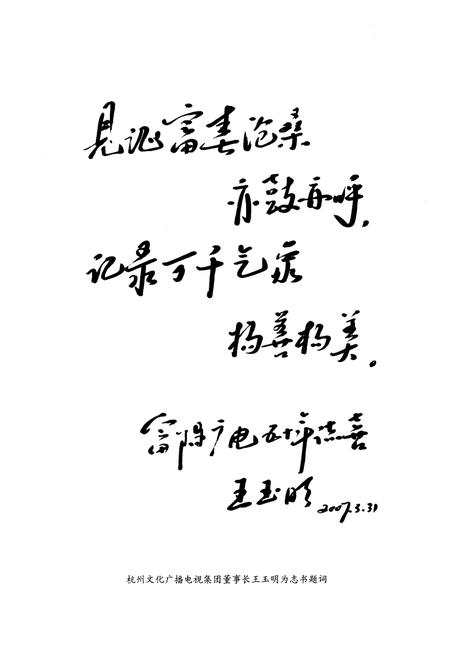 见证富春沧桑
亦鼓亦呼,
记录万千气象
扬善扬美。
富阳广电五十年誌喜
王玉明 2007.3.31
杭州文化广播电视集团董事长王玉明为志书题词